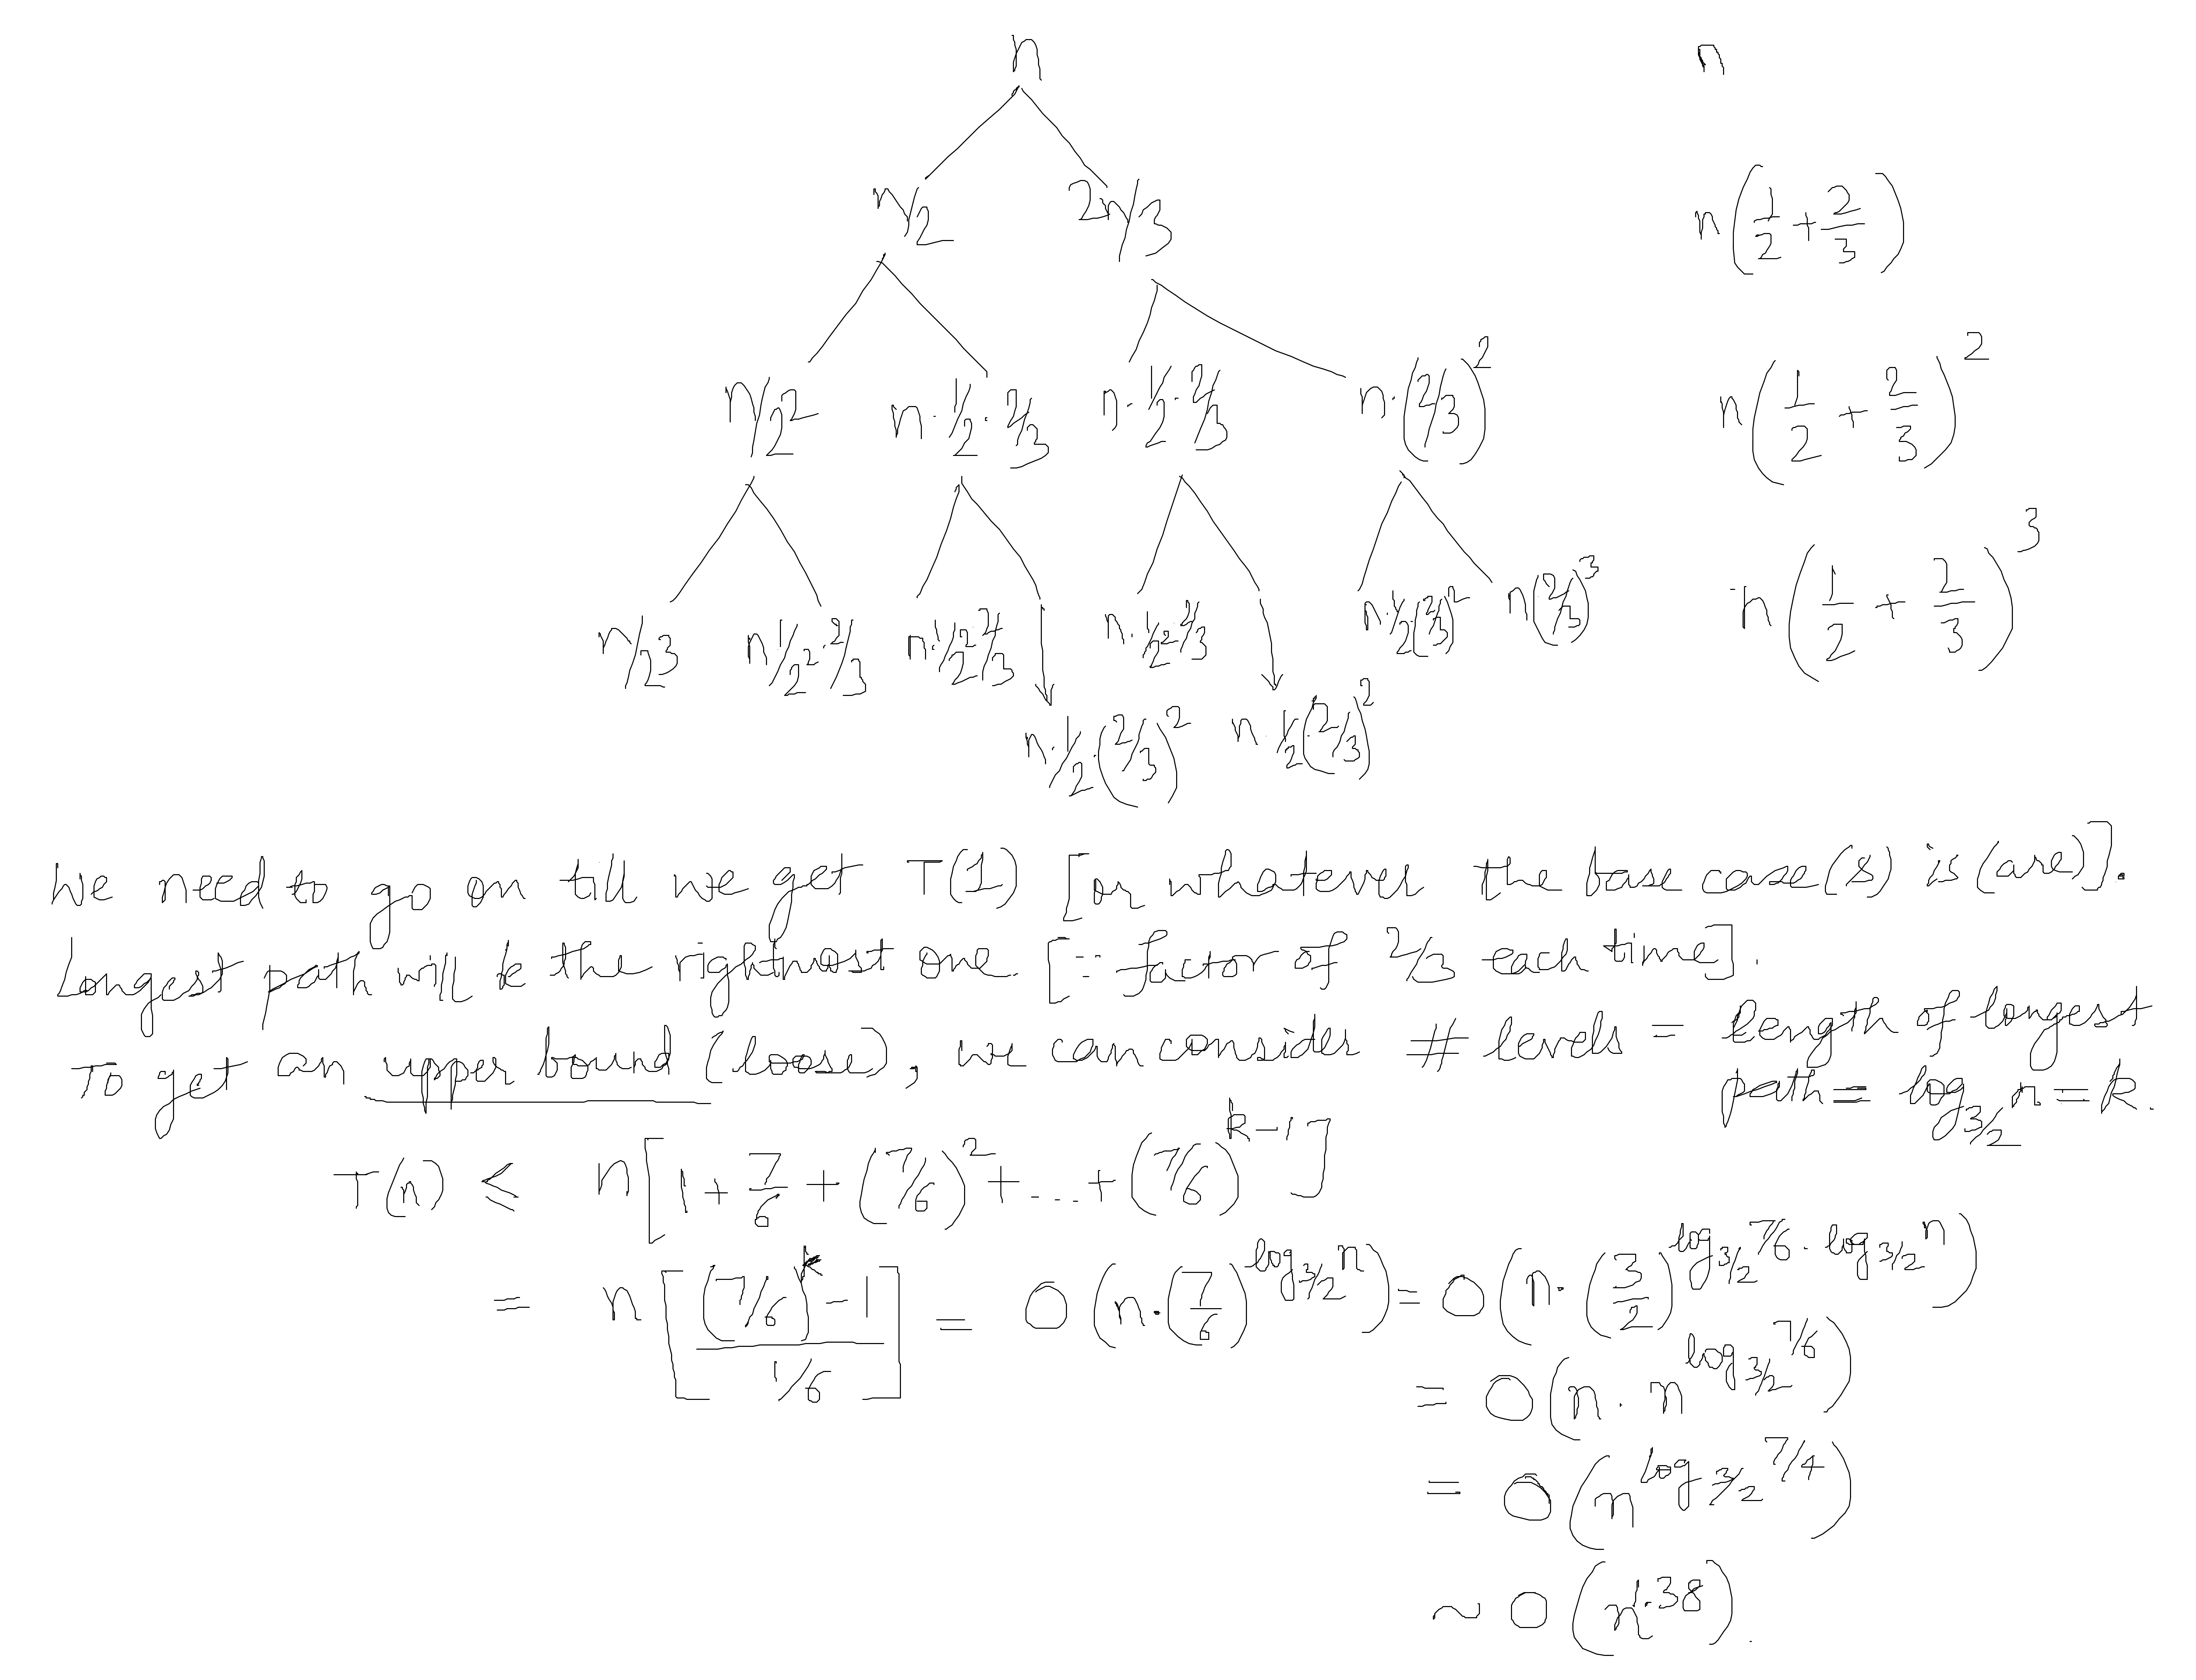 n n
n/2 2n/3 n(1/2 + 2/3)
n/2² n·1/2·2/3 n·1/2·2/3 n·(2/3)² n(1/2 + 2/3)²
n/2³ n·1/2²·2/3 n·1/2²·2/3 n·1/2²·2/3 n·1/2·(2/3)² n(2/3)³ n(1/2 + 2/3)³
n·1/2·(2/3)² n·1/2(2/3)²
We need to go on till we get T(1) [or whatever the base case(s) is (are)].
Longest path will be the rightmost one. [∵ factor of 2/3 each time].
To get an upper bound (loose), we can consider # levels = length of longest
path = log_{3/2} n = k.
T(n) ≤ n[1 + 7/6 + (7/6)² + ... + (7/6)^{k-1}]
= n[((7/6)^k - 1)/(1/6)] = O(n·(7/6)^{log_{3/2} n}) = O(n·(3/2)^{log_{3/2} 7/6 · log_{3/2} n})
= O(n · n^{log_{3/2} 7/6})
= O(n^{log_{3/2} 7/4})
~ O(n^{1.38}).